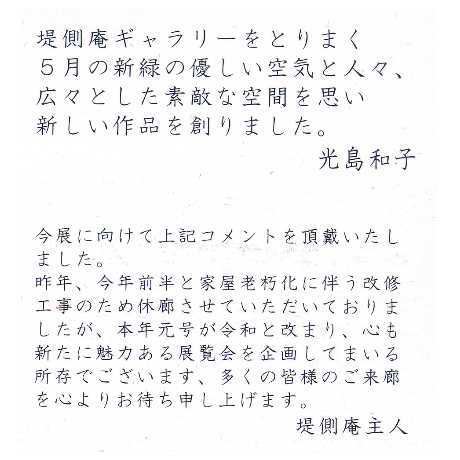 堤側庵ギャラリーをとりまく
５月の新緑の優しい空気と人々、
広々とした素敵な空間を思い
新しい作品を創りました。
光島和子
今展に向けて上記コメントを頂戴いたし
ました。
昨年、今年前半と家屋老朽化に伴う改修
工事のため休廊させていただいておりま
したが、本年元号が令和と改まり、心も
新たに魅力ある展覧会を企画してまいる
所存でございます、多くの皆様のご来廊
を心よりお待ち申し上げます。
堤側庵主人